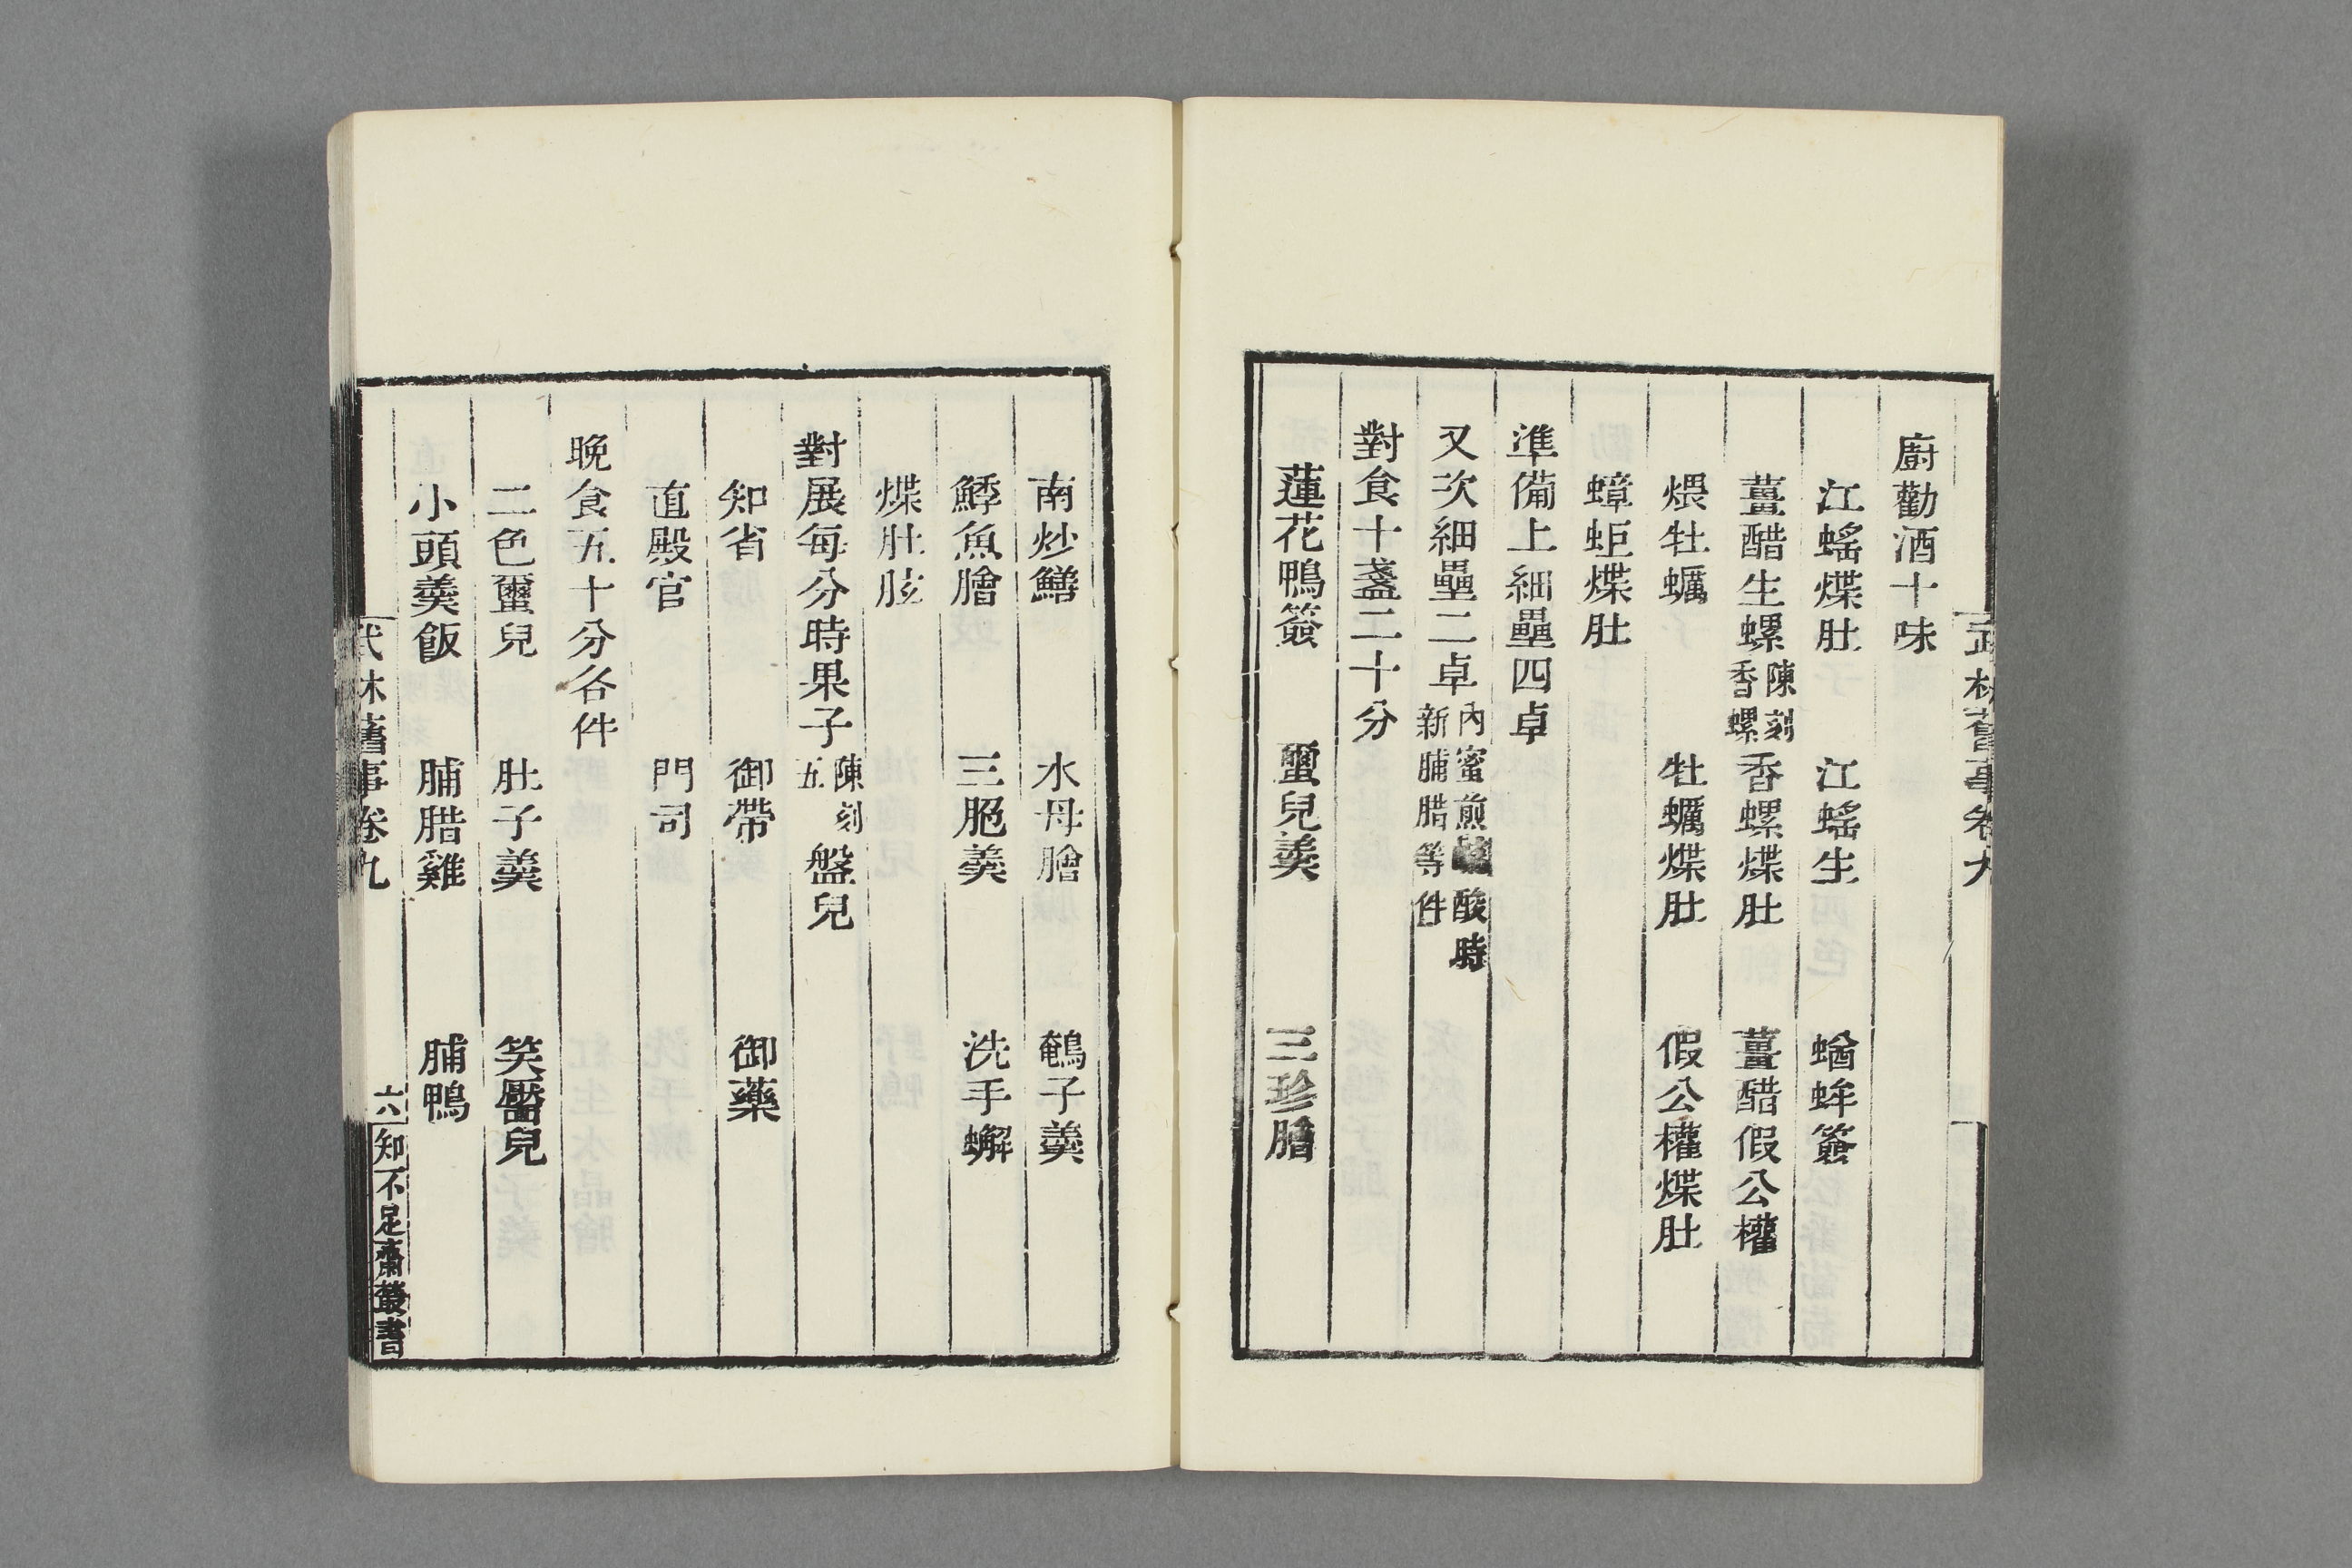 武林舊事卷九
廚勸酒十味
江蝤煠肚 江蝤生 蝤蛑簽
薑醋生螺 陳刻香螺 香螺煠肚 薑醋假公權
煨牡蠣 牡蠣煠肚 假公權煠肚
蟑蚷煠肚
準備上細壘四卓
又次細壘二卓 內蜜煎醎酸時新脯腊等件
對食十盞二十分
蓮花鴨簽 䍁兒羹 三珍膾
南炒鱔 水母膾 鵪子羹
鯚魚膾 三脆羹 洗手蠏
煠肚胘
對展每分時果子 陳刻五 盤兒
知省 御帶 御藥
直殿官 門司
晚食五十分各件
二色䍁兒 肚子羹 笑靨兒
小頭羹飯 脯腊雞 脯鴨
武林舊事卷九
六 知不足齋叢書